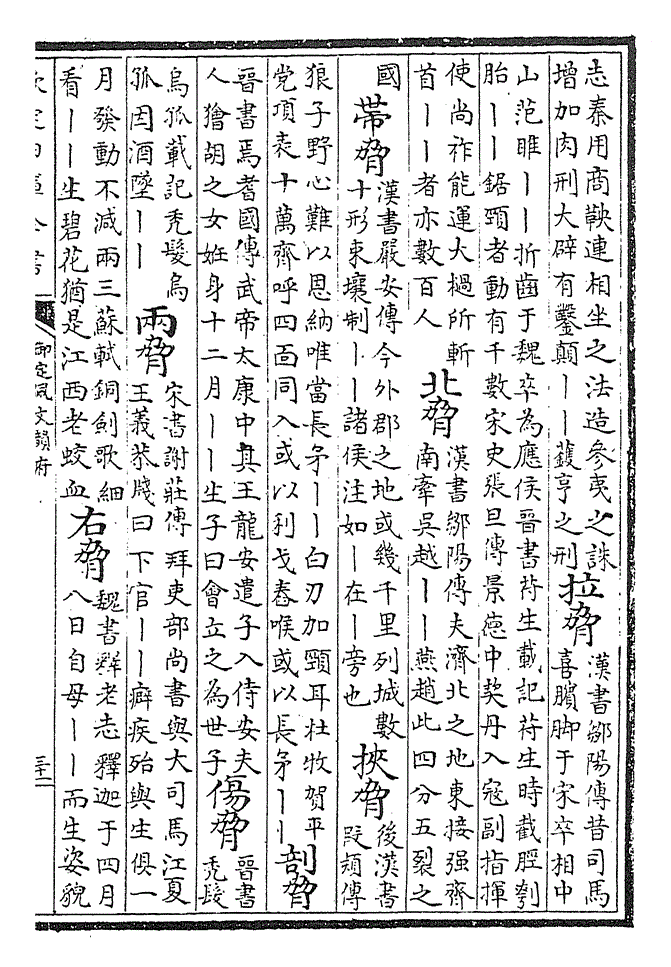 志秦用商鞅連相坐之法造參夷之誅
增加肉刑大辟有鑿顛丨丨鑊亨之刑
拉脅
漢書鄒陽傳昔司馬
喜臏脚于宋卒相中
山范睢丨丨折齒于魏卒為應侯晉書苻生載記苻生時截脛刳
胎丨丨鋸頸者動有千數宋史張旦傳景德中契丹入寇副指揮
使尚祚能運大檛所斬
首丨丨者亦數百人
北脅
漢書鄒陽傳夫濟北之地東接强齊
南牽吳越丨丨燕趙此四分五裂之
國
帶脅
漢書嚴安傳今外郡之地或幾千里列城數
十形束壤制丨丨諸侯注如丨在丨旁也
挾脅
後漢書
段熲傳
狼子野心難以恩納唯當長矛丨丨白刃加頸耳杜牧賀平
党項表十萬齊呼四面同入或以利戈舂喉或以長矛丨丨
剖脅
晉書焉耆國傳武帝太康中其王龍安遣子入侍安夫
人獪胡之女姙身十二月丨丨生子曰會立之為世子
傷脅
晉書
禿髮
烏孤載記禿髮烏
孤因酒墜丨丨
兩脅
宋書謝莊傳拜吏部尚書與大司馬江夏
王義恭牋曰下官丨丨癖疾殆與生俱一
月發動不減兩三蘇軾銅劍歌細
看丨丨生碧花猶是江西老蛟血
右脅
魏書釋老志釋迦于四月
八日自母丨丨而生姿貌
欽定四庫全書
御定佩文韻府